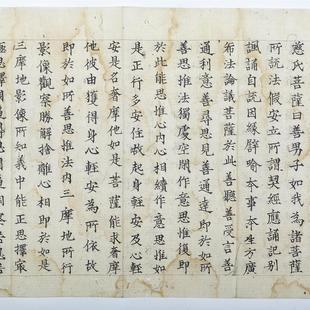 慈氏菩薩曰善男子如我為諸菩薩
所說法假安立所謂契經應誦記別
諷誦自說因緣譬喻本事本生方廣
希法論議菩薩於此善聽善受言善
通利意善尋思見善通達即於如所
善思惟法獨處空閑作意思惟復即
於此能思惟心內心相續作意思惟如
是正行多安住故起身輕安及心輕
安是名奢摩他如是菩薩能求奢摩
他彼由獲得身心輕安為所依故
即於如所善思惟法內三摩地所行
影像觀察勝解捨離心相即於如是
三摩地影像所知義中能正思擇最